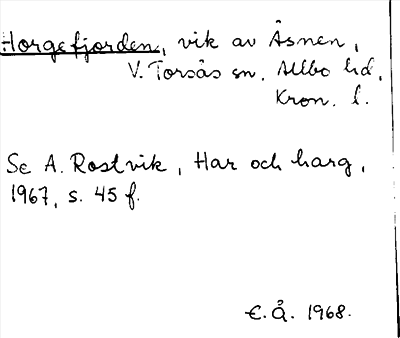 Horgefjorden, vik av Åsnen,
V. Torsås sn, Allbo hd,
Kron. l.
Se A. Rostvik, Har och harg,
1967, s. 45 f.
E.Å. 1968.